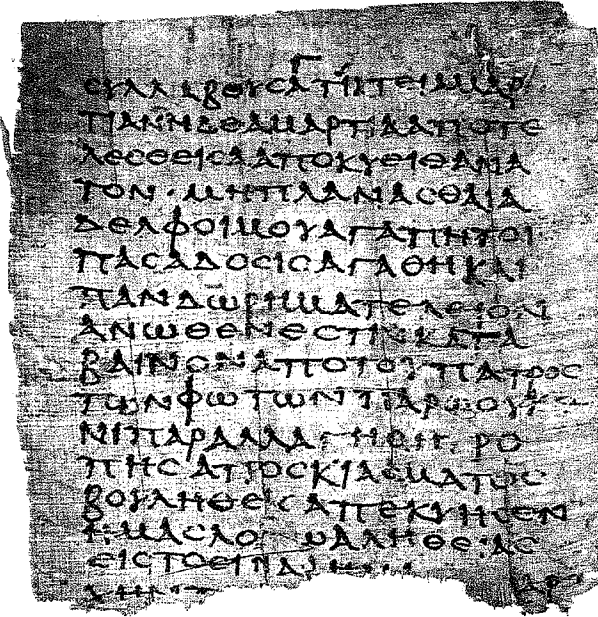 Γ
ϹΥΛΛΑΒΟΥϹΑΤΙΚΤΕΙΑΜΑΡ
ΤΙΑΝΗΔΕΑΜΑΡΤΙΑΑΠΟΤΕ
ΛΕϹΘΕΙϹΑΑΠΟΚΥΕΙΘΑΝΑ
ΤΟΝ·ΜΗΠΛΑΝΑϹΘΑΙΑ
ΔΕΛΦΟΙΜΟΥΑΓΑΠΗΤΟΙ
ΠΑϹΑΔΟϹΙϹΑΓΑΘΗΚΑΙ
ΠΑΝΔΩΡΗΜΑΤΕΛΕΙΟΝ
ΑΝΩΘΕΝΕϹΤΙΝΚΑΤΑ
ΒΑΙΝΟΝΑΠΟΤΟΥΠΑΤΡΟϹ
ΤΩΝΦΩΤΩΝΠΑΡΩΟΥΚΕ
ΝΙΠΑΡΑΛΛΑΓΗΟΗΤΡΟ
ΠΗϹΑΠΟϹΚΙΑϹΜΑΤΟϹ
ΒΟΥΛΗΘΕΙϹΑΠΕΚΥΗϹΕΝ
ΗΜΑϹΛΟΓΩΑΛΗΘΕΙΑϹ
ΕΙϹΤΟΕΙΝΑΙΗ